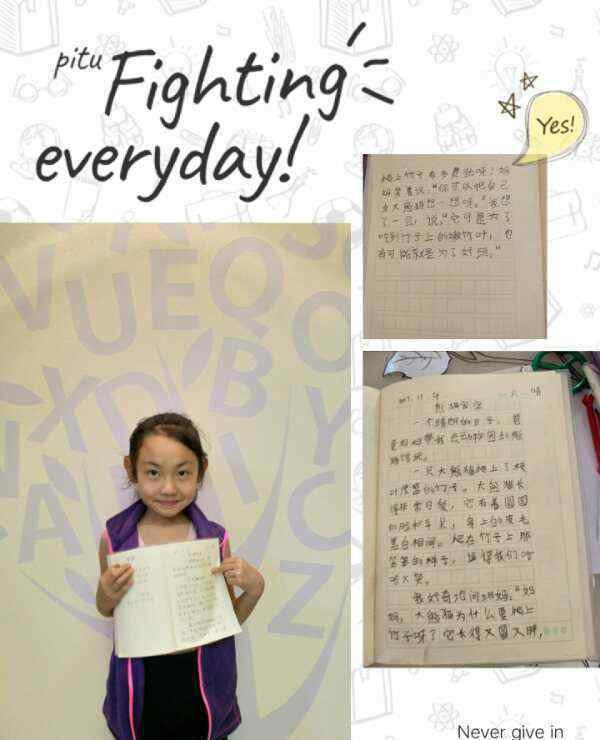 pitu Fighting
everyday!
Yes!
爬上竹子有多危险呀!妈
妈笑着说:"你可以把自己
当大熊猫想一想呀。"我想
了一会,说:"它可是为了
吃到竹子上的嫩竹叶,也
有可能就是为了好玩。"
晴
一个晴朗的日子,爸
爸妈妈带我去动物园
一只大熊猫爬上了枝
叶茂盛的竹子。大熊猫长
得非常可爱,它有着圆圆
的脸和耳朵,身上的皮毛
黑白相间。爬在竹子上那
笨笨的样子,逗得我们哈
哈大笑。
我好奇地问妈妈:"妈
妈,大熊猫为什么要爬上
竹子呀?它长得又圆又胖,
V U E Q
O
X D B Y
A I C
Z
Never give in